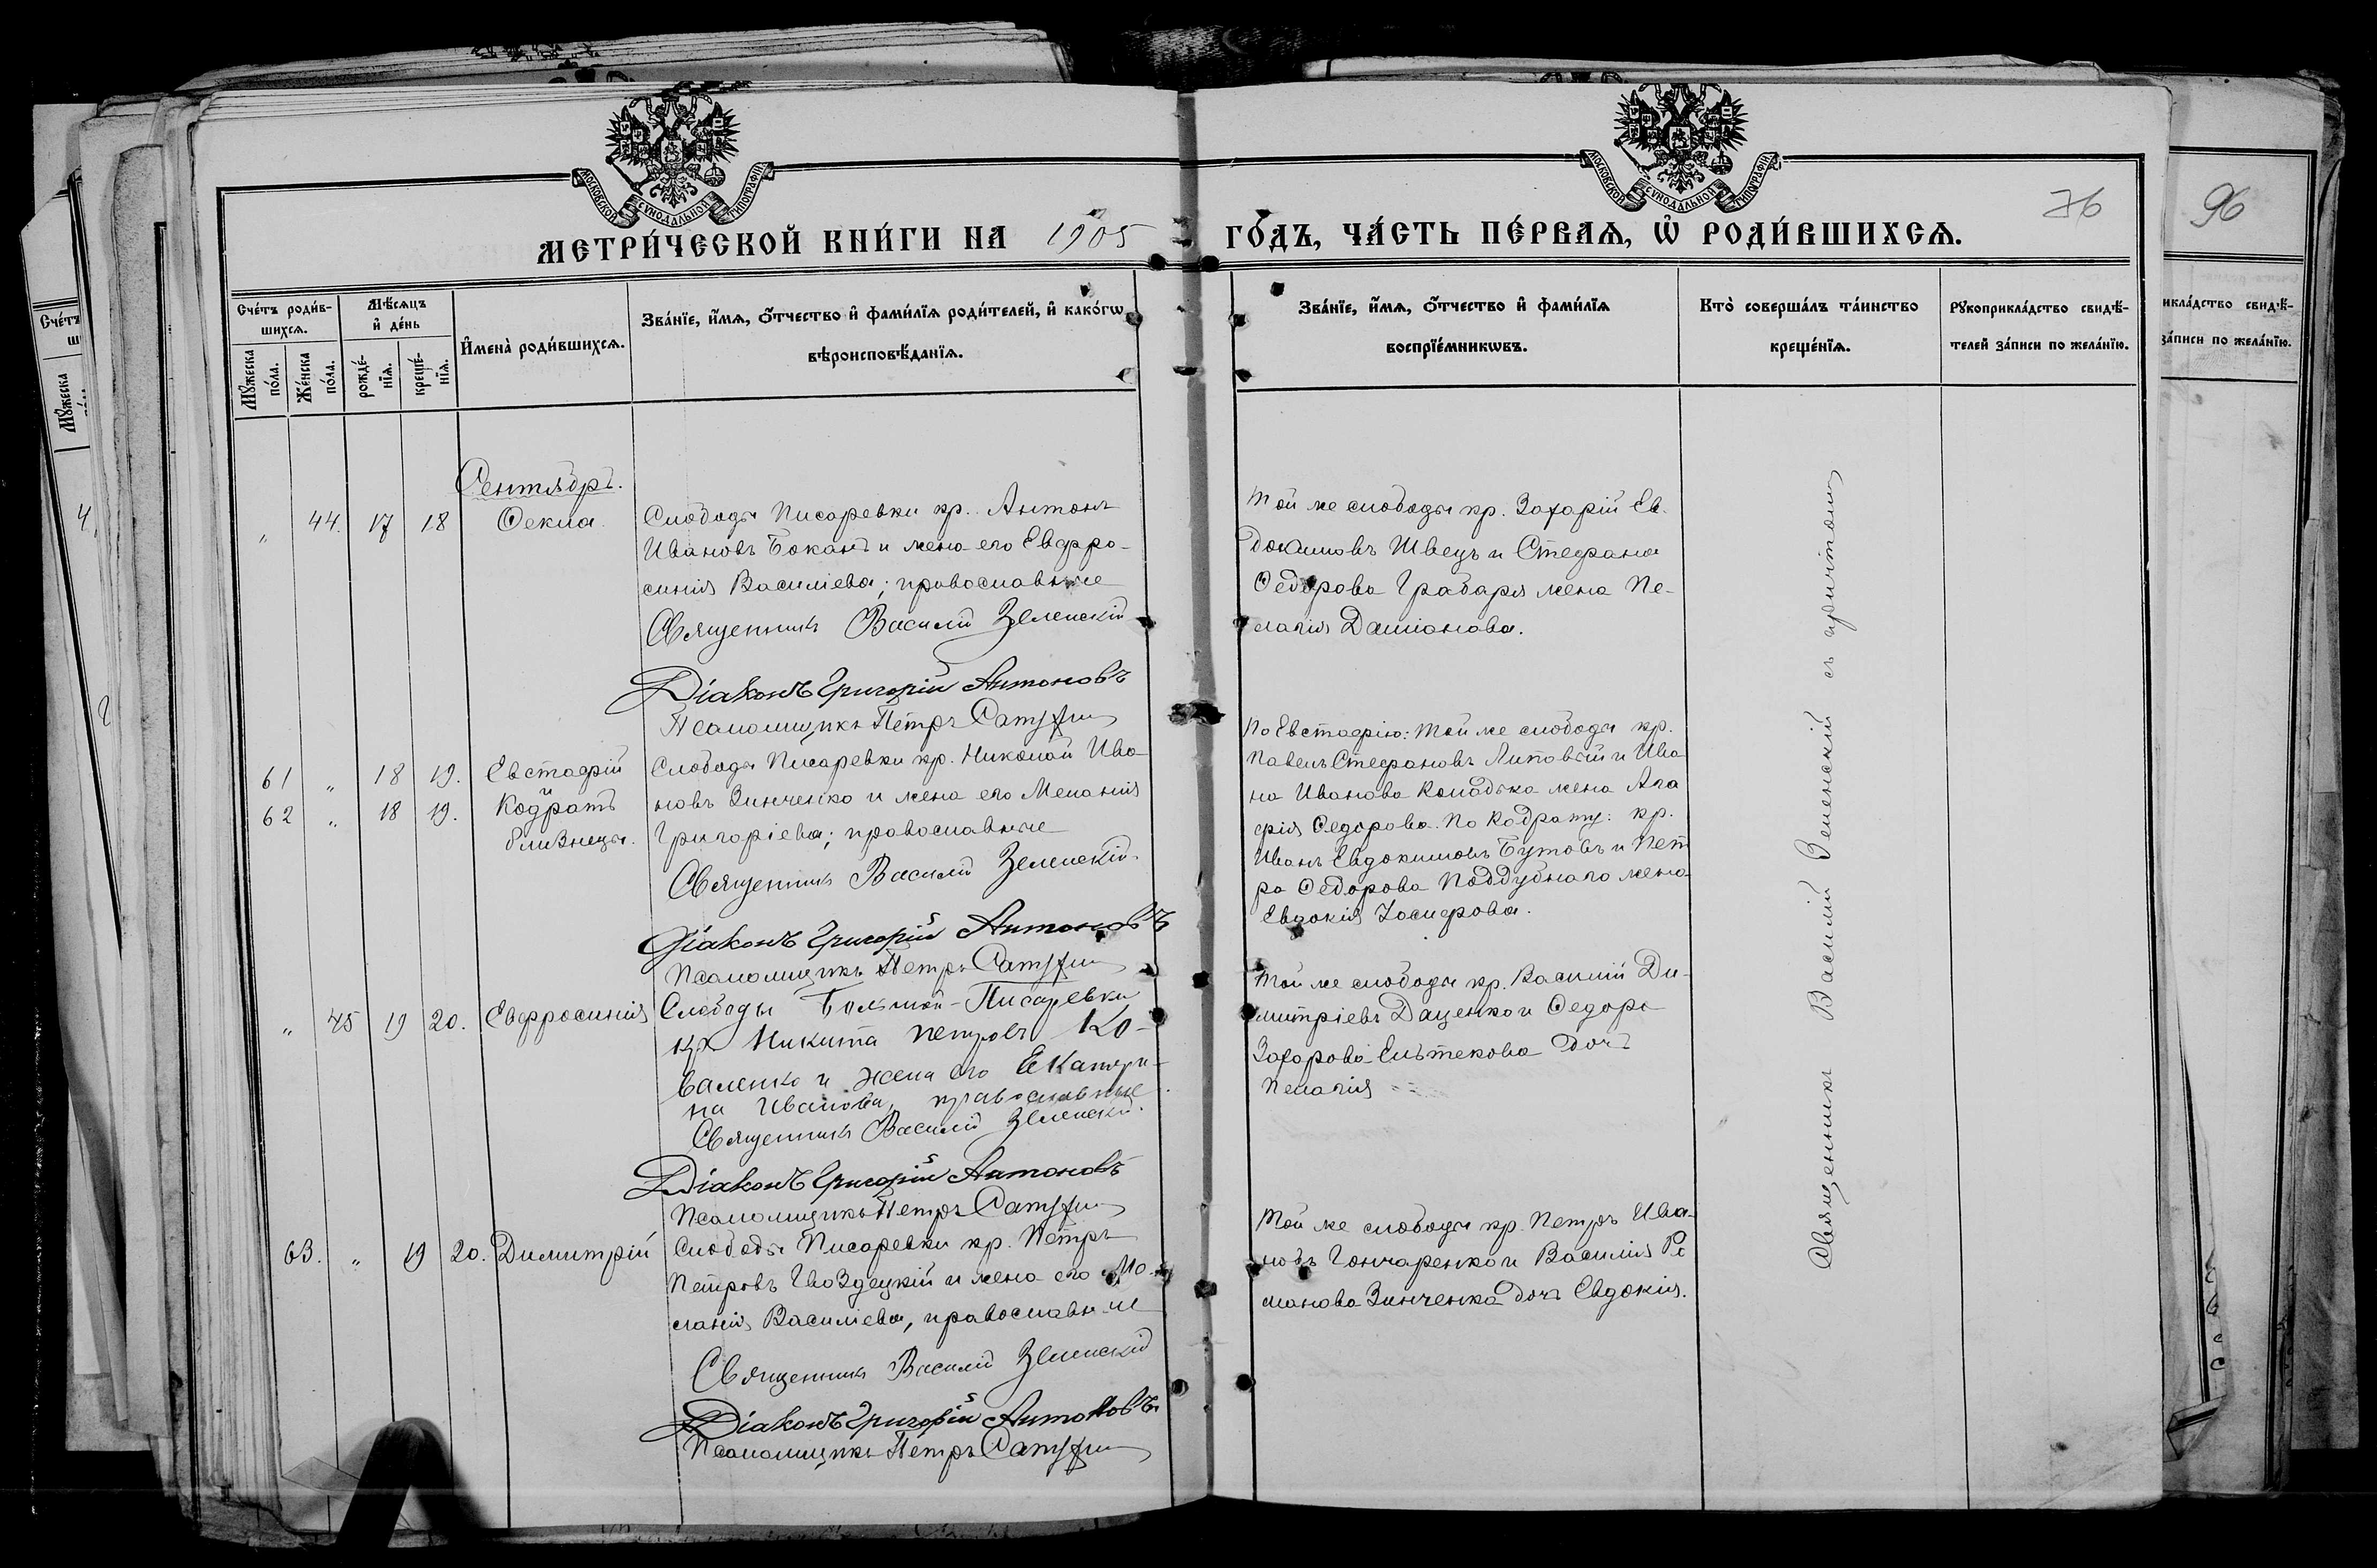 МОСКОВСКОЙ СѴНОДАЛЬНОЙ ТИПОГРАФІИ
МОСКОВСКОЙ СѴНОДАЛЬНОЙ ТИПОГРАФІИ
МЕТРИ́ЧЕСКОЙ КНИ́ГИ НА 1905 ГО́ДЪ, ЧА́СТЬ ПЕ́РВАѦ, Ѡ РОДИ́ВШИХСѦ.
76
96
Сче́тъ роди́в-
шихсѧ.
Мꙋ́жеска по́ла.
Же́нска по́ла.
Мѣ́сѧцъ
и҆ де́нь
рожде́-нїѧ.
креще́-нїѧ.
И҆мена̀ роди́вшихсѧ.
Зва́нїе, и҆́мѧ, ѻ҆́тчество и҆ фами́лїѧ роди́телей, и҆ како́гѡ
вѣроисповѣ́данїѧ.
Зва́нїе, и҆́мѧ, ѻ҆́тчество и҆ фами́лїѧ
воспрїе́мникѡвъ.
Кто̀ соверша́лъ та́инство
креще́нїѧ.
Рꙋкоприкла́дство свидѣ́-
телей за́писи по жела́нїю.
Сентябрь.
„ 44. 17 18 Ѳекла.
Слободы Писаревки кр. Антонъ
Ивановъ Боканъ и жена его Евфро-
синія Василіева; православные
Священникъ Василій Зеленскій
Діаконъ Григорій Антоновъ
Псаломщикъ Петръ
Той же слободы кр. Захарій Ев-
докимовъ Швецъ и Стефана
Ѳедорова Грабаря жена Пе-
лагія Даміанова.
61 „ 18 19. Евстафій
и
62 „ 18 19. Кодратъ
близнецы.
Слободы Писаревки кр. Николай Ива-
новъ Зинченко и жена его Меланія
Григоріева; православные
Священникъ Василій Зеленскій.
Діаконъ Григорій Антоновъ
Псаломщикъ Петръ
По Евстафію: той же слободы кр.
Павелъ Стефановъ Липовый и Ива-
на Иванова жена Ага
фія Ѳедорова. По Кодрату: кр.
Иванъ Евдокимовъ Бутовъ и Пет
ра Ѳедорова Поддубнаго жена
Евдокія Іосифова.
„ 45 19 20. Евфросинія
Слободы Большой-Писаревки
кр. Никита Петровъ Ко-
валенко и жена его Екатери-
на Иванова, православные
Священникъ Василій Зеленскій.
Діаконъ Григорій Антоновъ
Псаломщикъ Петръ
Той же слободы кр. Василій Ди-
митріевъ Даценко и Ѳедора
Захарова дочь
Пелагія
63. „ 19 20. Димитрій
Слободы Писаревки кр. Петръ
Петровъ Гвоздецкій и жена его
Василіева, православные
Священникъ Василій Зеленскій
Діаконъ Григорій Антоновъ
Псаломщикъ Петръ
Той же слободы кр. Петръ Ива-
новъ Гончаренко и Василія Ро
манова Зинченка дочь Евдокія.
Священникъ Василій Зеленскій съ причтомъ